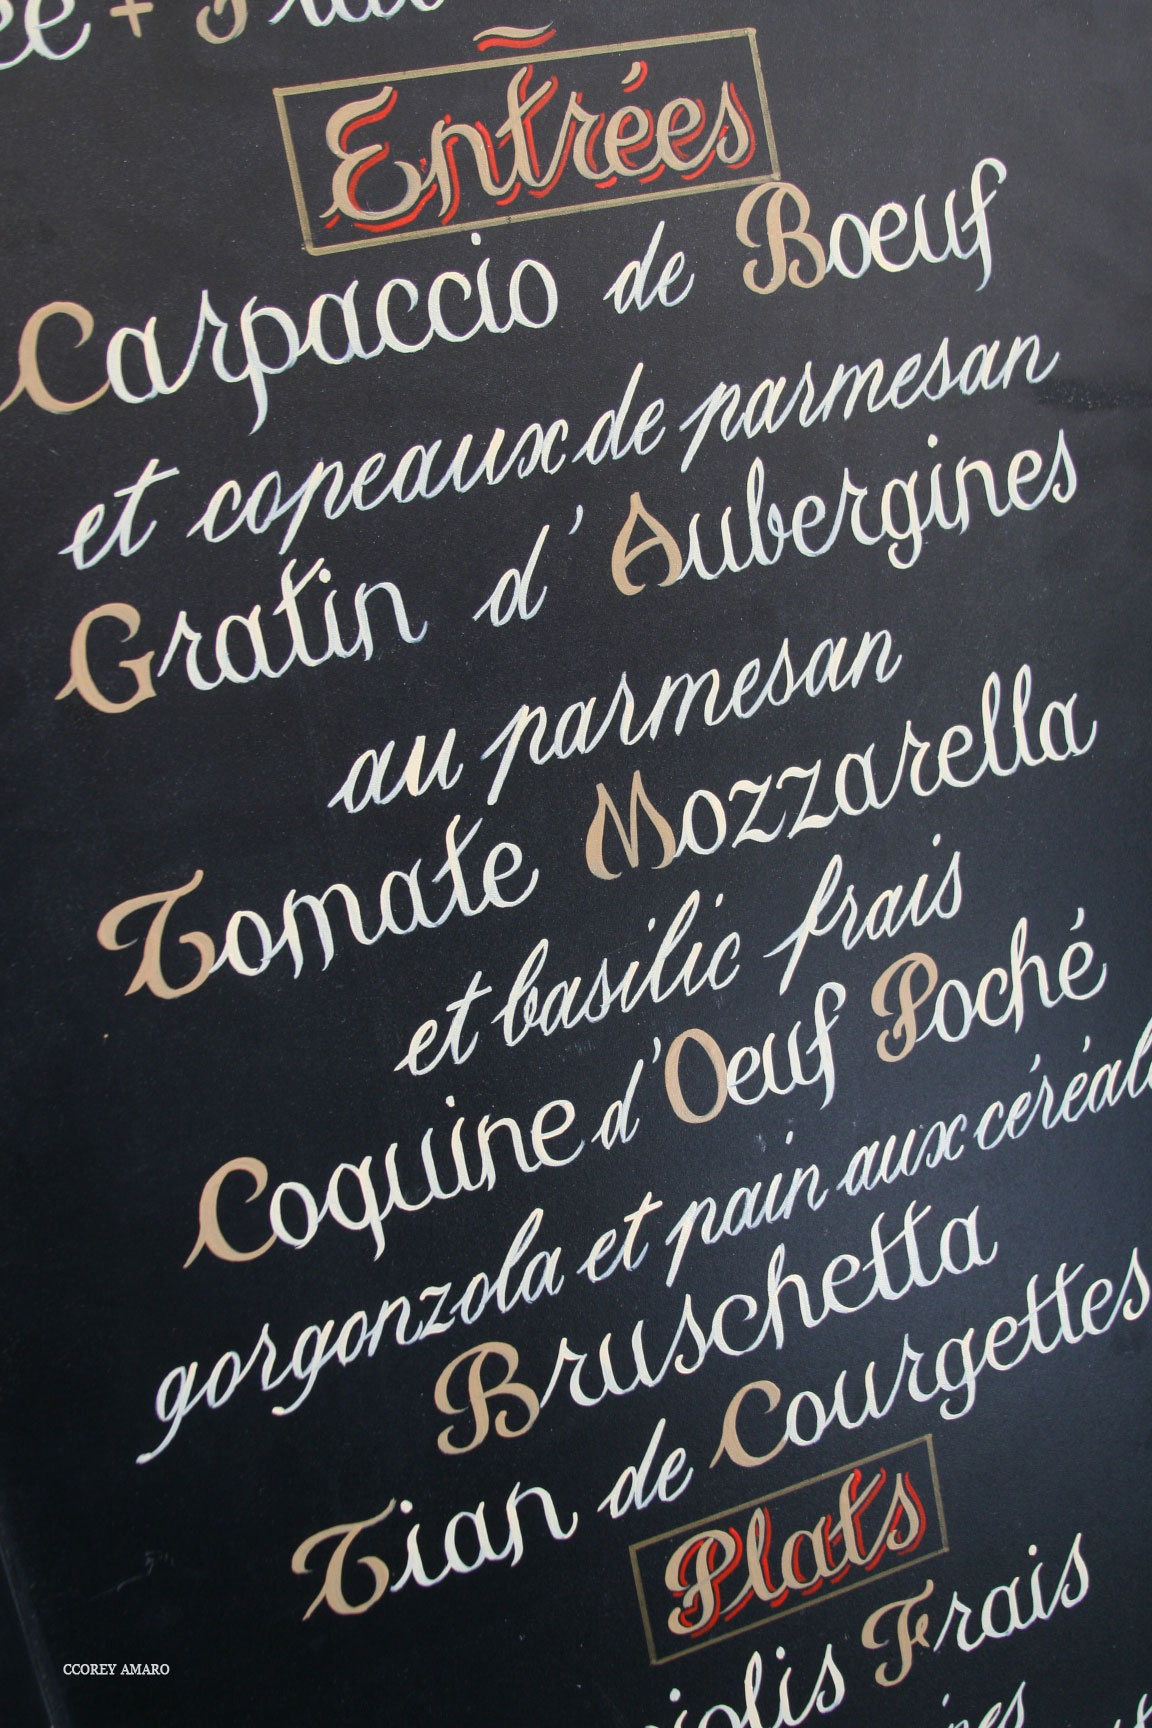 Entrées
Carpaccio de Boeuf
et copeaux de parmesan
Gratin d'Aubergines
au parmesan
Tomate Mozzarella
et basilic frais
Coquine d'Oeuf Poché
gorgonzola et pain aux
Bruschetta
Tian de Courgettes
Plats
Frais
CCOREY AMARO